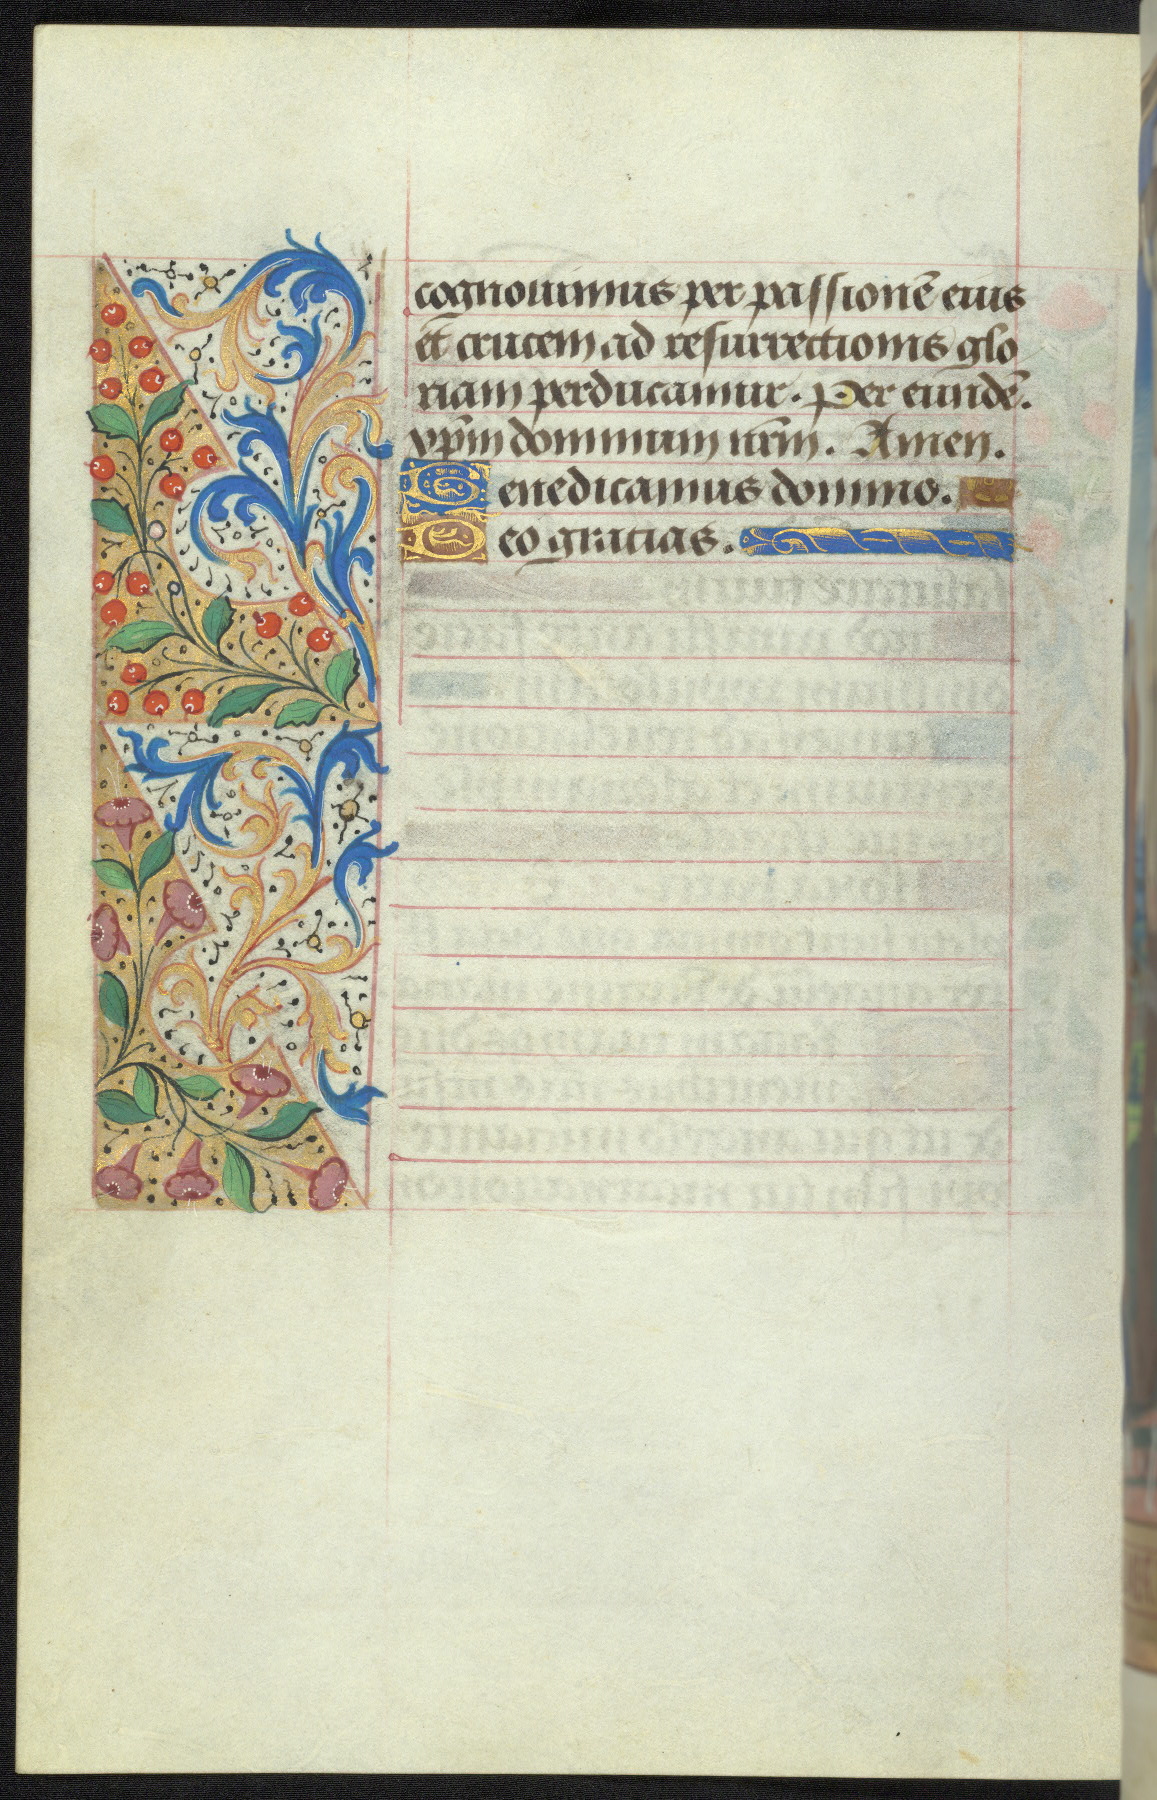 cognouimus per passionē eius
et crucem ad resurrectionis glo
riam perducamur. Per eundē.
xp̄m dominum nr̄m. Amen.
Benedicamus domino.
Deo gracias.